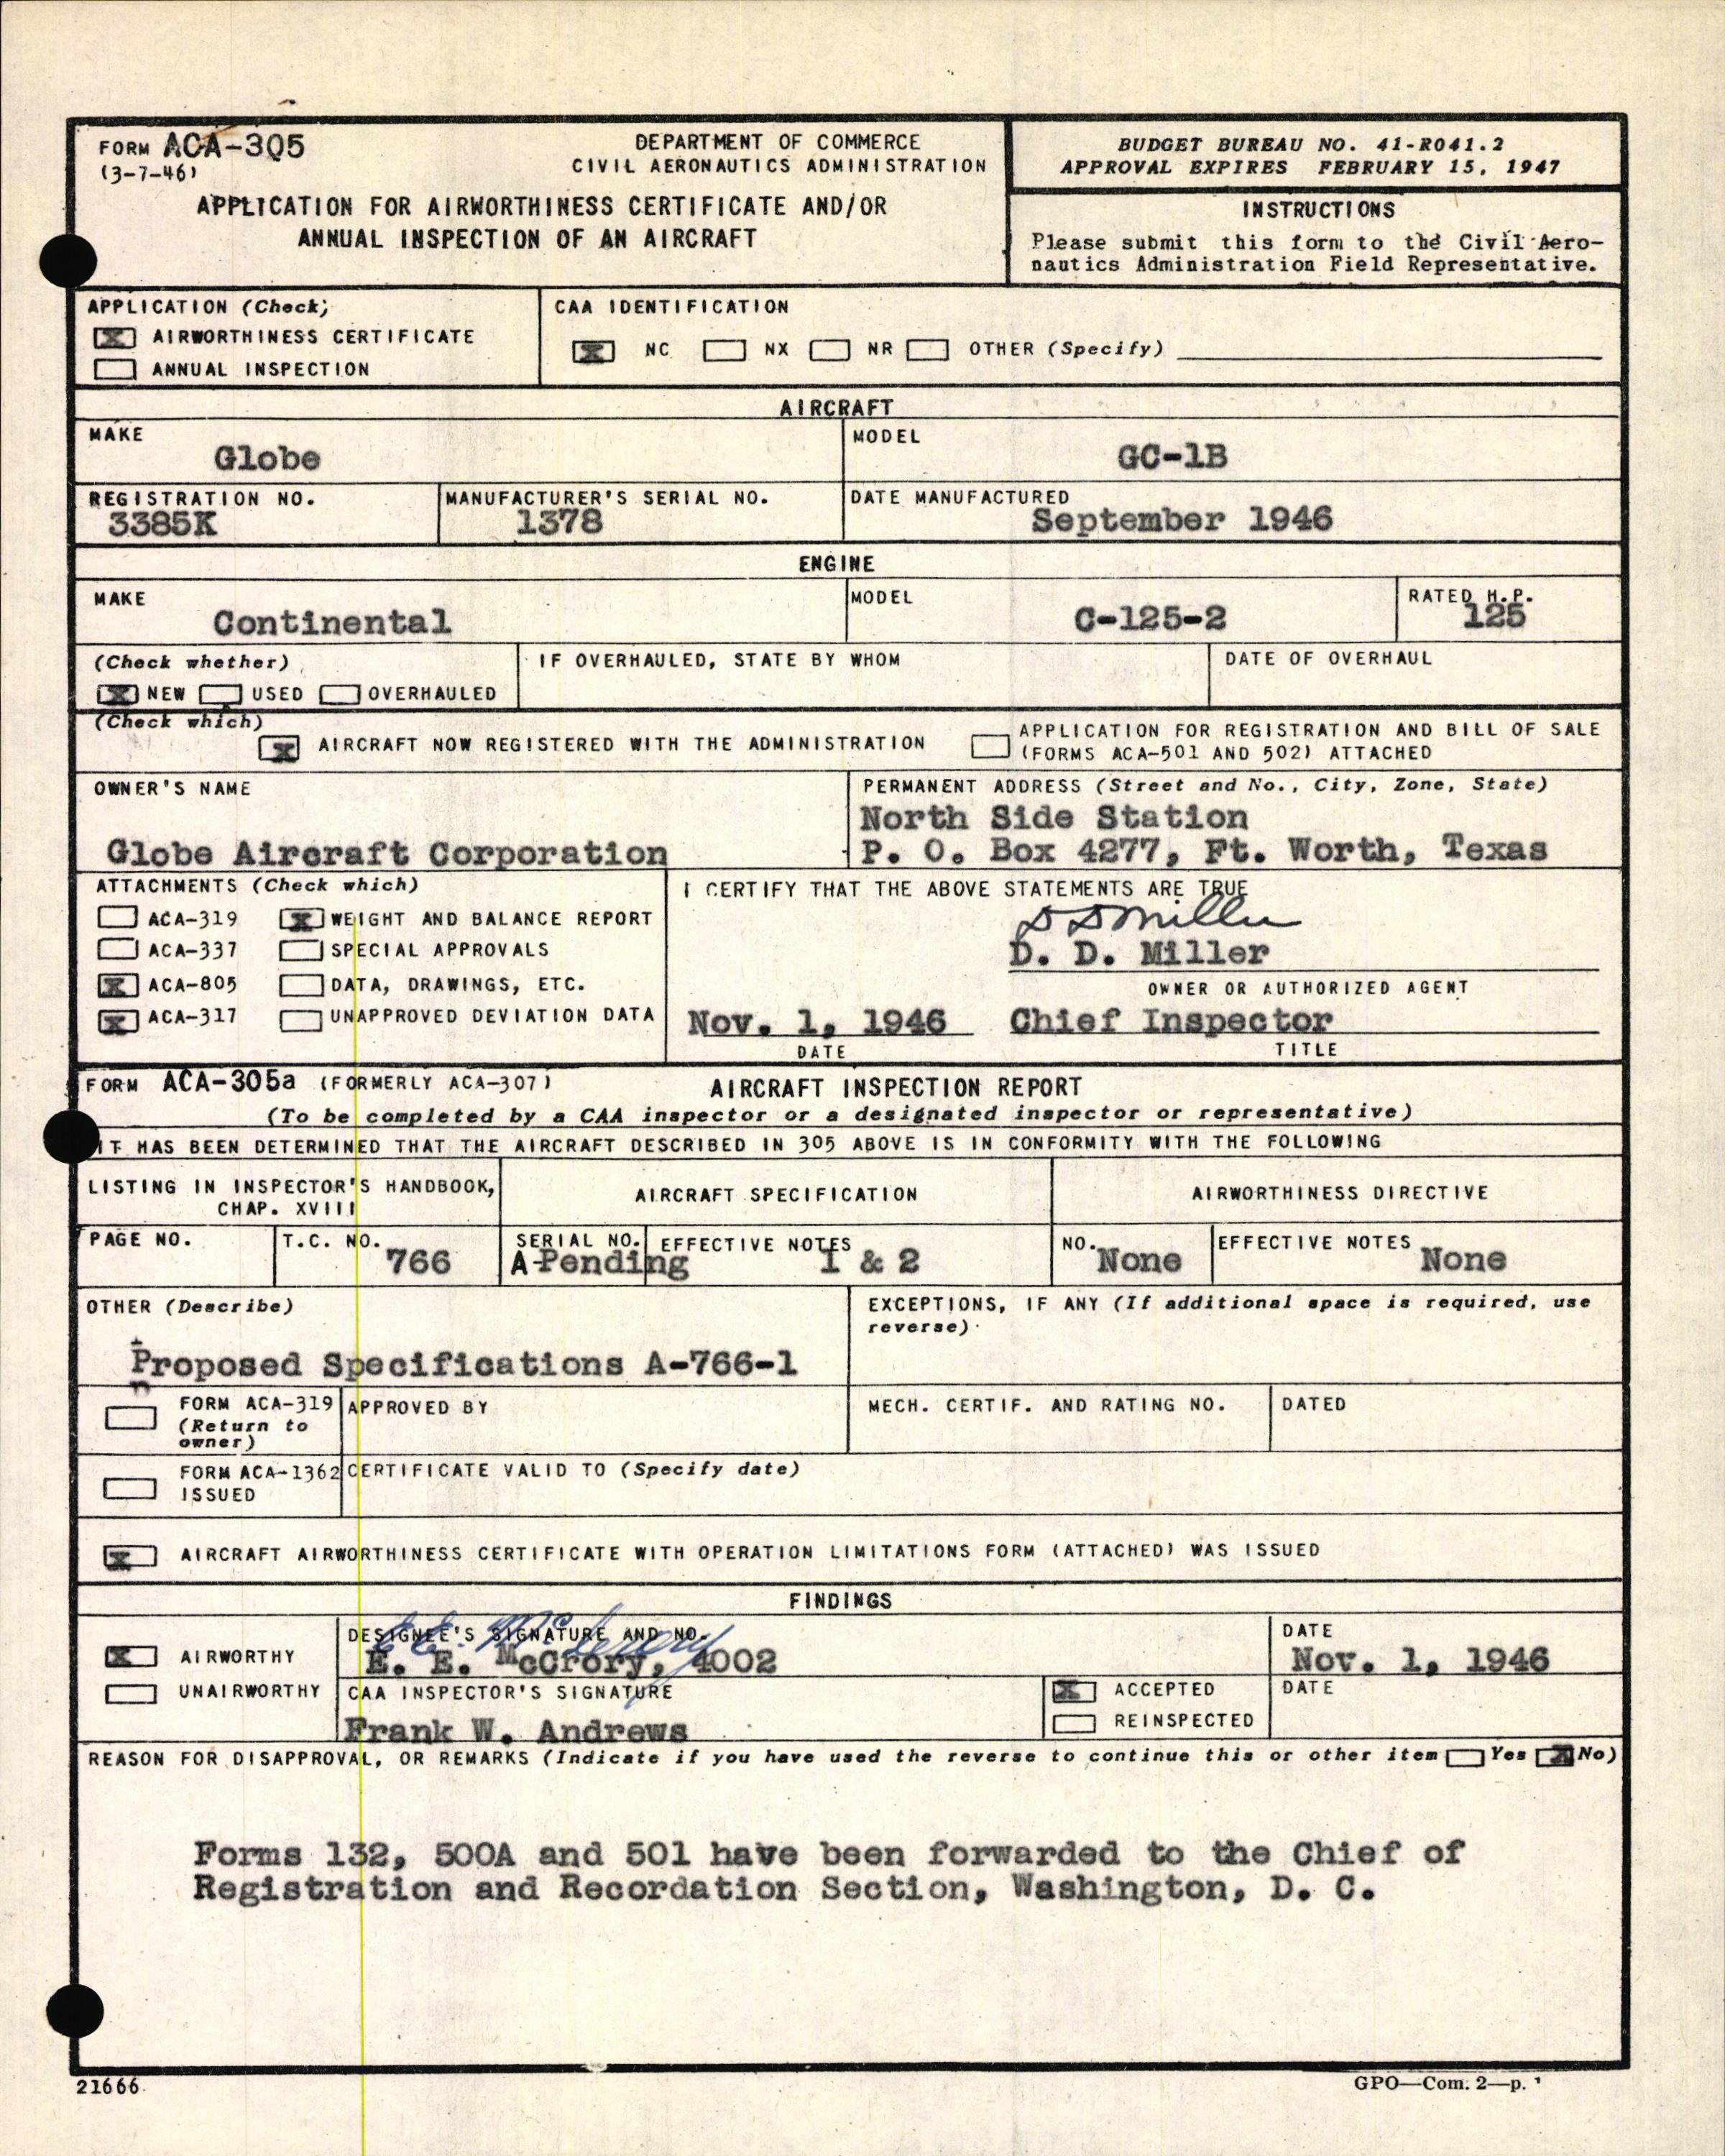 FORM ACA-305
(3-7-46)
DEPARTMENT OF COMMERCE
CIVIL AERONAUTICS ADMINISTRATION
APPLICATION FOR AIRWORTHINESS CERTIFICATE AND/OR
ANNUAL INSPECTION OF AN AIRCRAFT
BUDGET BUREAU NO. 41-R041.2
APPROVAL EXPIRES FEBRUARY 15, 1947
INSTRUCTIONS
Please submit this form to the Civil Aero-
nautics Administration Field Representative.
APPLICATION (Check)
X AIRWORTHINESS CERTIFICATE
ANNUAL INSPECTION
CAA IDENTIFICATION
X NC NX NR OTHER (Specify)
AIRCRAFT
MAKE
Globe
MODEL
GC-1B
REGISTRATION NO.
3385K
MANUFACTURER'S SERIAL NO.
1378
DATE MANUFACTURED
September 1946
ENGINE
MAKE
Continental
MODEL
C-125-2
RATED H.P.
125
(Check whether)
X NEW USED OVERHAULED
IF OVERHAULED, STATE BY WHOM
DATE OF OVERHAUL
(Check which)
X AIRCRAFT NOW REGISTERED WITH THE ADMINISTRATION
APPLICATION FOR REGISTRATION AND BILL OF SALE
(FORMS ACA-501 AND 502) ATTACHED
OWNER'S NAME
Globe Aircraft Corporation
PERMANENT ADDRESS (Street and No., City, Zone, State)
North Side Station
P. O. Box 4277, Ft. Worth, Texas
ATTACHMENTS (Check which)
ACA-319 X WEIGHT AND BALANCE REPORT
ACA-337 SPECIAL APPROVALS
X ACA-805 DATA, DRAWINGS, ETC.
X ACA-317 UNAPPROVED DEVIATION DATA
I CERTIFY THAT THE ABOVE STATEMENTS ARE TRUE
D D Miller
D. D. Miller
OWNER OR AUTHORIZED AGENT
Nov. 1, 1946 Chief Inspector
DATE TITLE
FORM ACA-305a (FORMERLY ACA-307) AIRCRAFT INSPECTION REPORT
(To be completed by a CAA inspector or a designated inspector or representative)
IT HAS BEEN DETERMINED THAT THE AIRCRAFT DESCRIBED IN 305 ABOVE IS IN CONFORMITY WITH THE FOLLOWING
LISTING IN INSPECTOR'S HANDBOOK,
CHAP. XVIII
AIRCRAFT SPECIFICATION
AIRWORTHINESS DIRECTIVE
PAGE NO.
T.C. NO.
766
SERIAL NO.
A-Pending
EFFECTIVE NOTES
1 & 2
NO.
None
EFFECTIVE NOTES
None
OTHER (Describe)
Proposed Specifications A-766-1
EXCEPTIONS, IF ANY (If additional space is required, use
reverse)
FORM ACA-319
(Return to
owner)
APPROVED BY
MECH. CERTIF. AND RATING NO.
DATED
FORM ACA-1362
ISSUED
CERTIFICATE VALID TO (Specify date)
X AIRCRAFT AIRWORTHINESS CERTIFICATE WITH OPERATION LIMITATIONS FORM (ATTACHED) WAS ISSUED
FINDINGS
X AIRWORTHY
UNAIRWORTHY
DESIGNEE'S SIGNATURE AND NO.
E. E. McCrory
E. E. McCrory, 4002
DATE
Nov. 1, 1946
CAA INSPECTOR'S SIGNATURE
Frank W. Andrews
X ACCEPTED
REINSPECTED
DATE
REASON FOR DISAPPROVAL, OR REMARKS (Indicate if you have used the reverse to continue this or other item Yes X No)
Forms 132, 500A and 501 have been forwarded to the Chief of
Registration and Recordation Section, Washington, D. C.
21666
GPO—Com. 2—p.